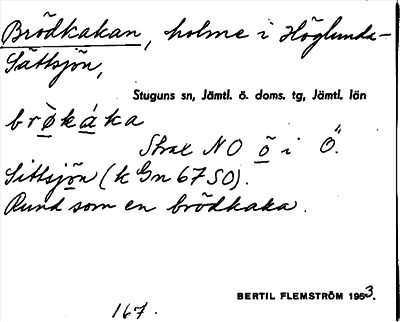 Brödkakan, holme i Höglunda-
Sättsjön,
Stuguns sn, Jämtl. ö. doms. tg, Jämtl. län
brò̤káka
Strax NO ö i Ö.
Sittsjön (k Gn 67 SO).
Rund som en brödkaka.
BERTIL FLEMSTRÖM 1953.
167.